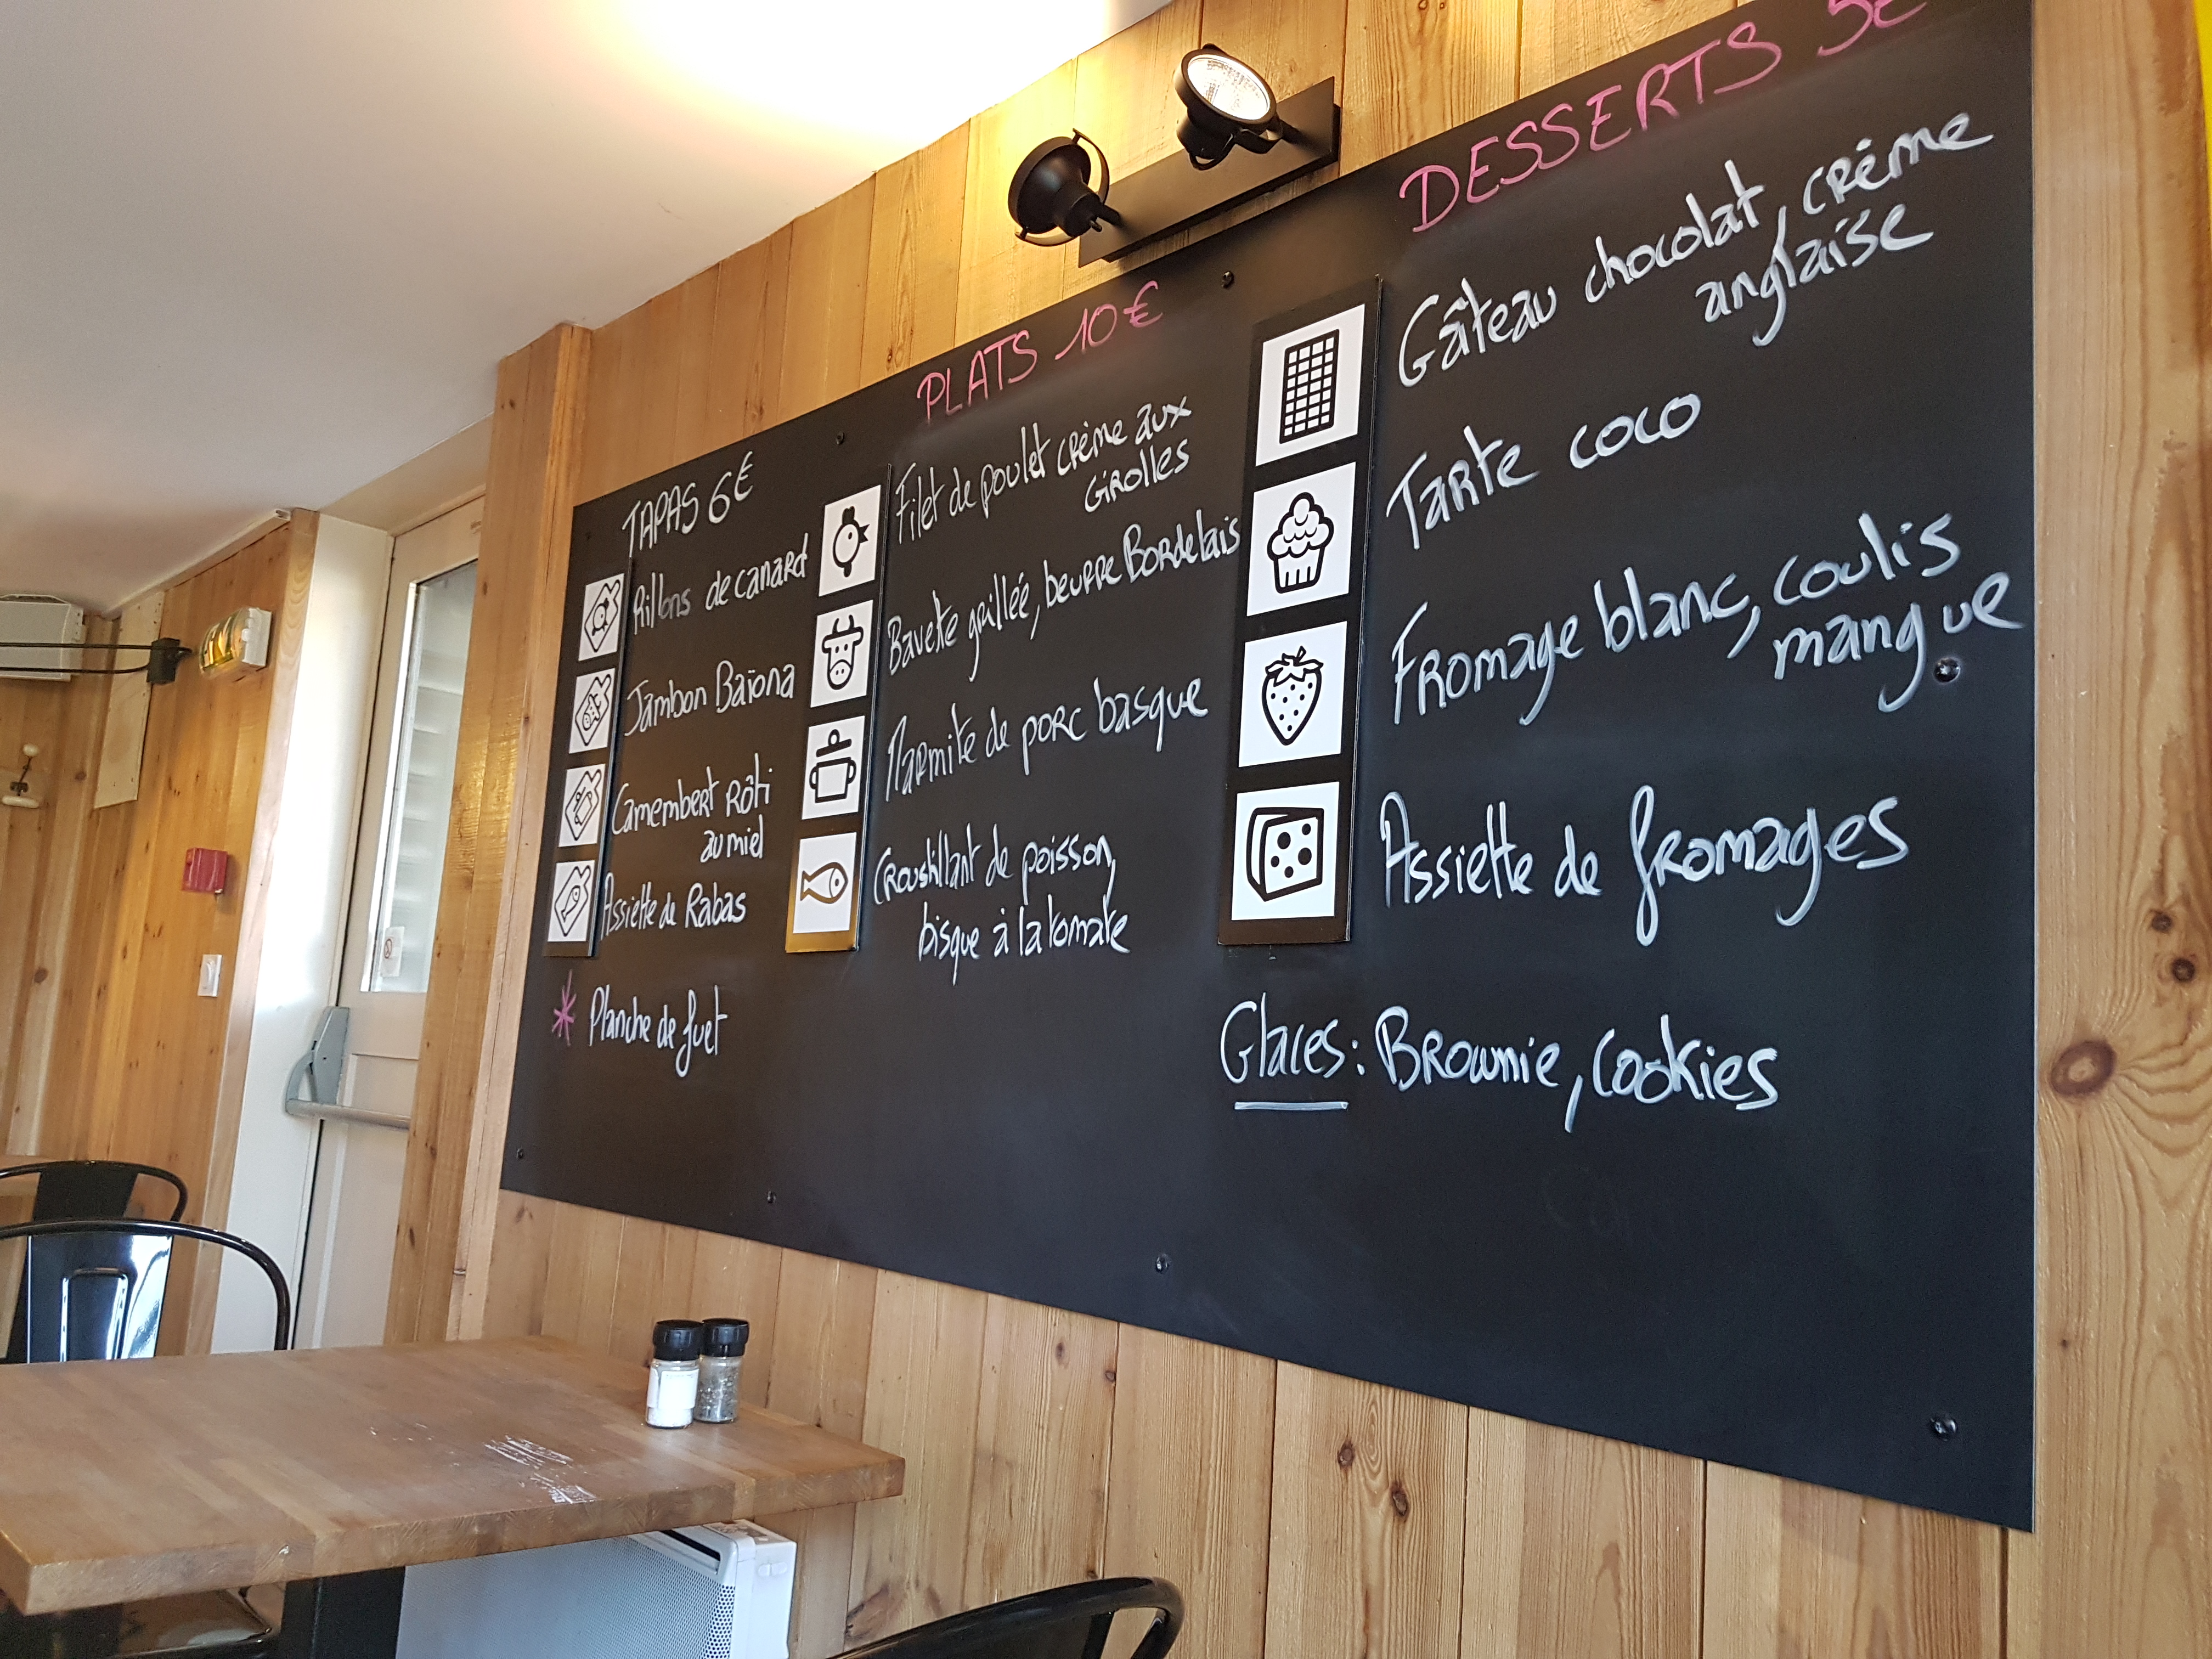 TAPAS 6€
Rillons de canard
Jambon Baïona
Camembert Rôti
au miel
Assiette de Rabas
* Planche de fuet
PLATS 10€
Filet de poulet crème aux
Girolles
Bavette grillée, beurre Bordelais
Marmite de porc basque
Croustillant de poisson,
bisque à la tomate
DESSERTS 5€
Gâteau chocolat, crème
anglaise
Tarte coco
Fromage blanc, coulis
mangue
Assiette de fromages
Glaces : Brownie, Cookies